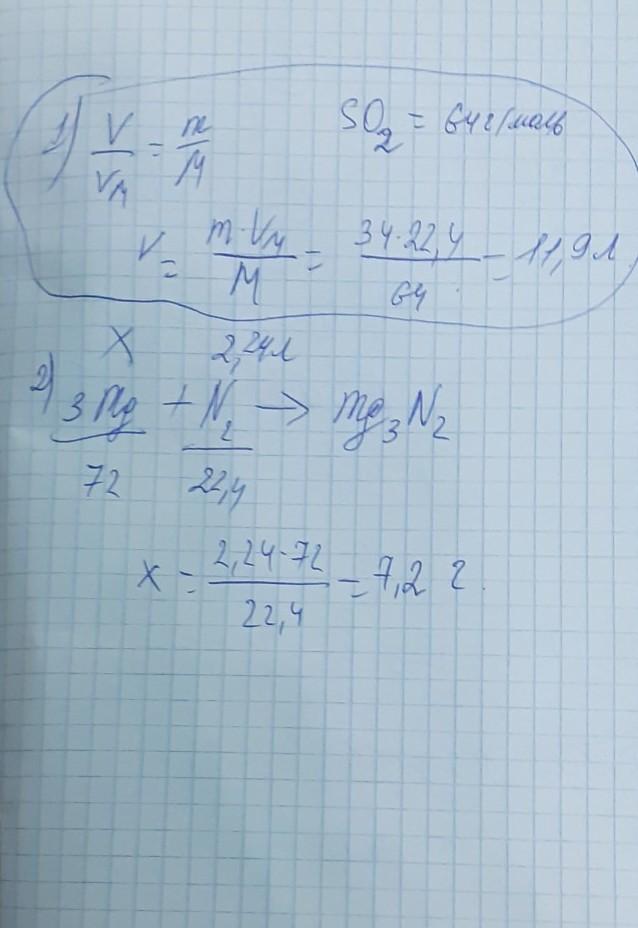 1) V/Vм = m/M SO₂ = 64 г/моль
V = m·Vм/M = 34·22,4/64 = 11,9 л
X 2,24 л
2) 3Mg + N₂ → Mg₃N₂
72 22,4
x = 2,24·72/22,4 = 7,2 г.